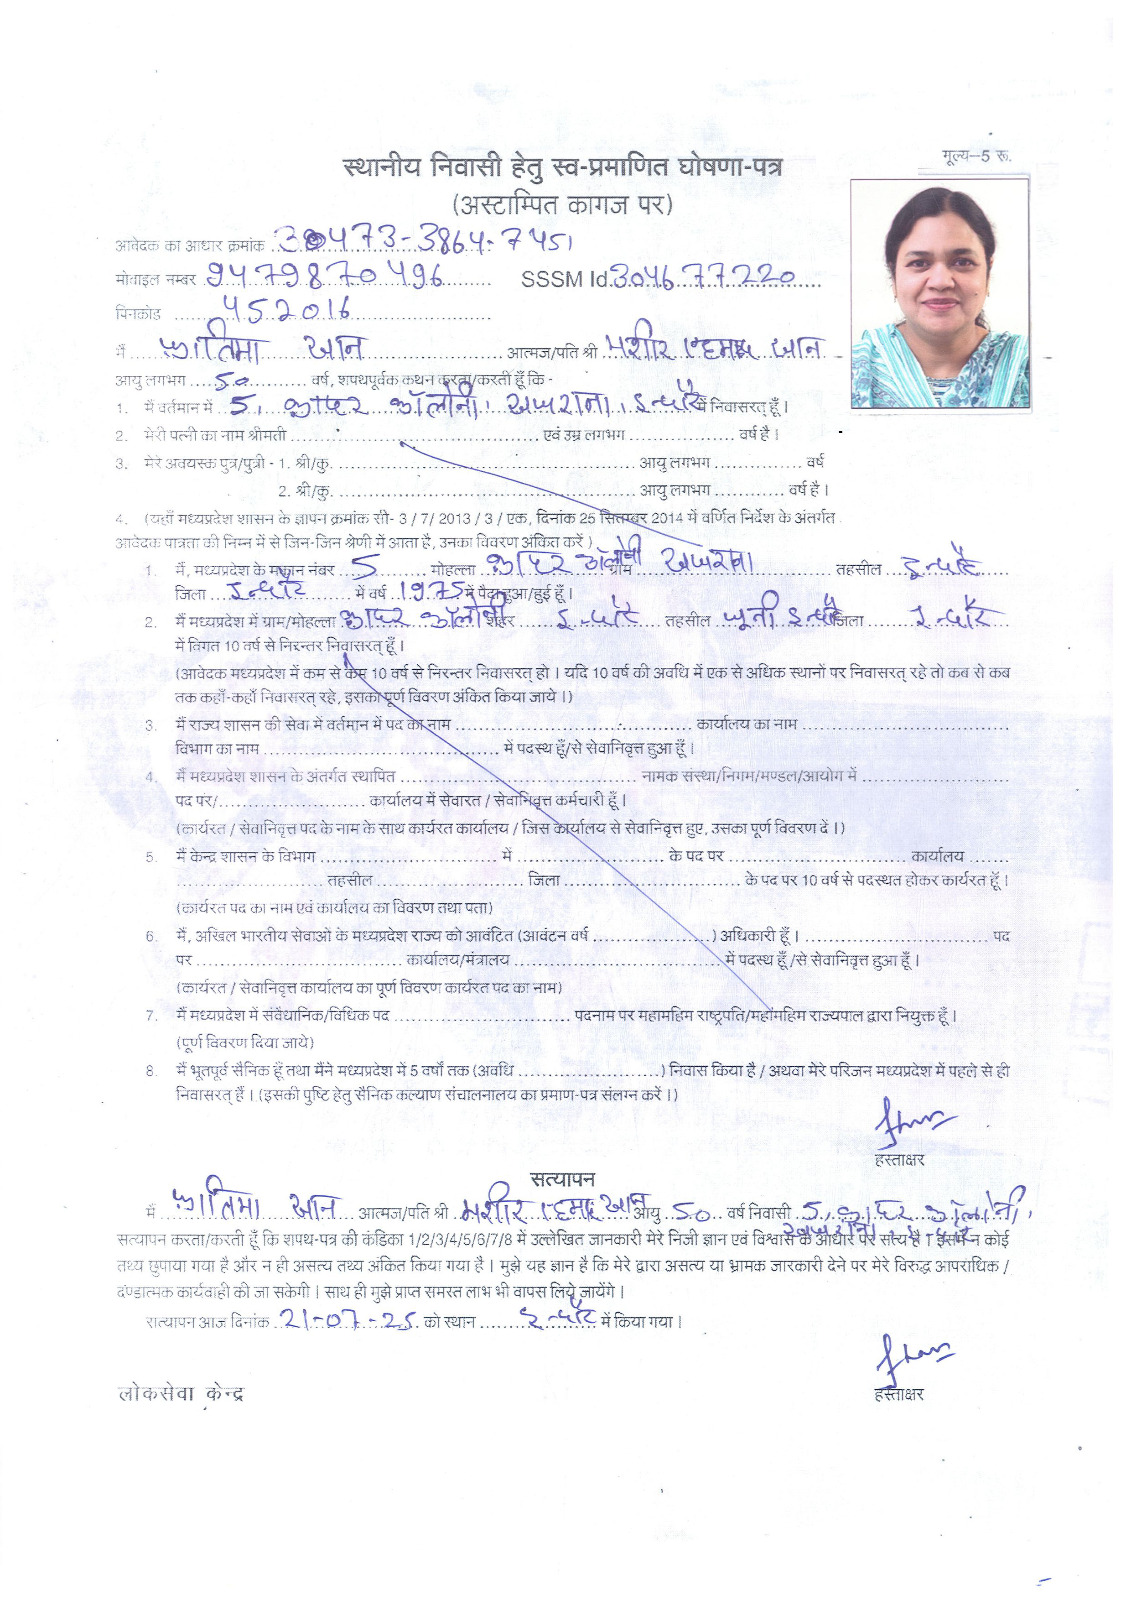 मूल्य–5 रू.
स्थानीय निवासी हेतु स्व-प्रमाणित घोषणा-पत्र
(अस्टाम्पित कागज पर)
आवेदक का आधार क्रमांक 473-3864-7451
मोबाइल नम्बर 9479870496 SSSM Id 304677220
पिनकोड 452016
मैं फातिमा खान आत्मज/पति श्री मशीर एहमद खान
आयु लगभग 50 वर्ष, शपथपूर्वक कथन करता/करती हूँ कि -
1. मैं वर्तमान में 5, कादर कॉलोनी, खजराना, इन्दौर में निवासरत् हूँ।
2. मेरी पत्नी का नाम श्रीमती ........ एवं उम्र लगभग ........ वर्ष है।
3. मेरे अवयस्क पुत्र/पुत्री - 1. श्री/कु. ........ आयु लगभग ........ वर्ष
2. श्री/कु. ........ आयु लगभग ........ वर्ष है।
4. (यहाँ मध्यप्रदेश शासन के ज्ञापन क्रमांक सी- 3 / 7/ 2013 / 3 / एक, दिनांक 25 सितम्बर 2014 में वर्णित निर्देश के अंतर्गत
आवेदक पात्रता की निम्न में से जिन-जिन श्रेणी में आता है, उनका विवरण अंकित करें)
1. मैं, मध्यप्रदेश के मकान नंबर 5 मोहल्ला कादर कॉलोनी ग्राम खजराना तहसील इन्दौर
जिला इन्दौर में वर्ष 1975 में पैदा हुआ/हुई हूँ।
2. मैं मध्यप्रदेश में ग्राम/मोहल्ला कादर कॉलोनी शहर इन्दौर तहसील जूनी इन्दौर जिला इन्दौर
में विगत 10 वर्ष से निरन्तर निवासरत् हूँ।
(आवेदक मध्यप्रदेश में कम से कम 10 वर्ष से निरन्तर निवासरत् हो। यदि 10 वर्ष की अवधि में एक से अधिक स्थानों पर निवासरत् रहे तो कब से कब
तक कहाँ-कहाँ निवासरत् रहे, इसका पूर्ण विवरण अंकित किया जाये।)
3. मैं राज्य शासन की सेवा में वर्तमान में पद का नाम ........ कार्यालय का नाम ........
विभाग का नाम ........ में पदस्थ हूँ/से सेवानिवृत्त हुआ हूँ।
4. मैं मध्यप्रदेश शासन के अंतर्गत स्थापित ........ नामक संस्था/निगम/मण्डल/आयोग में ........
पद पर/........ कार्यालय में सेवारत / सेवानिवृत्त कर्मचारी हूँ।
(कार्यरत / सेवानिवृत्त पद के नाम के साथ कार्यरत कार्यालय / जिस कार्यालय से सेवानिवृत्त हुए, उसका पूर्ण विवरण दें।)
5. मैं केन्द्र शासन के विभाग ........ में ........ के पद पर ........ कार्यालय ........
........ तहसील ........ जिला ........ के पद पर 10 वर्ष से पदस्थत होकर कार्यरत हूँ।
(कार्यरत पद का नाम एवं कार्यालय का विवरण तथा पता)
6. मैं, अखिल भारतीय सेवाओं के मध्यप्रदेश राज्य को आवंटित (आवंटन वर्ष ........) अधिकारी हूँ। ........ पद
पर ........ कार्यालय/मंत्रालय ........ में पदस्थ हूँ/से सेवानिवृत्त हुआ हूँ।
(कार्यरत / सेवानिवृत्त कार्यालय का पूर्ण विवरण कार्यरत पद का नाम)
7. मैं मध्यप्रदेश में संवैधानिक/विधिक पद ........ पदनाम पर महामहिम राष्ट्रपति/महामहिम राज्यपाल द्वारा नियुक्त हूँ।
(पूर्ण विवरण दिया जाये)
8. मैं भूतपूर्व सैनिक हूँ तथा मैंने मध्यप्रदेश में 5 वर्षों तक (अवधि ........) निवास किया है / अथवा मेरे परिजन मध्यप्रदेश में पहले से ही
निवासरत् हैं। (इसकी पुष्टि हेतु सैनिक कल्याण संचालनालय का प्रमाण-पत्र संलग्न करें।)
हस्ताक्षर
सत्यापन
मैं फातिमा खान आत्मज/पति श्री मशीर एहमद खान आयु 50 वर्ष निवासी 5, कादर कॉलोनी,
खजराना, इन्दौर
सत्यापन करता/करती हूँ कि शपथ-पत्र की कंडिका 1/2/3/4/5/6/7/8 में उल्लेखित जानकारी मेरे निजी ज्ञान एवं विश्वास के आधार पर सत्य है। इसमें न कोई
तथ्य छुपाया गया है और न ही असत्य तथ्य अंकित किया गया है। मुझे यह ज्ञान है कि मेरे द्वारा असत्य या भ्रामक जारकारी देने पर मेरे विरुद्ध आपराधिक /
दण्डात्मक कार्यवाही की जा सकेगी। साथ ही मुझे प्राप्त समस्त लाभ भी वापस लिये जायेंगे।
सत्यापन आज दिनांक 21-07-25 को स्थान इन्दौर में किया गया।
हस्ताक्षर
लोकसेवा केन्द्र